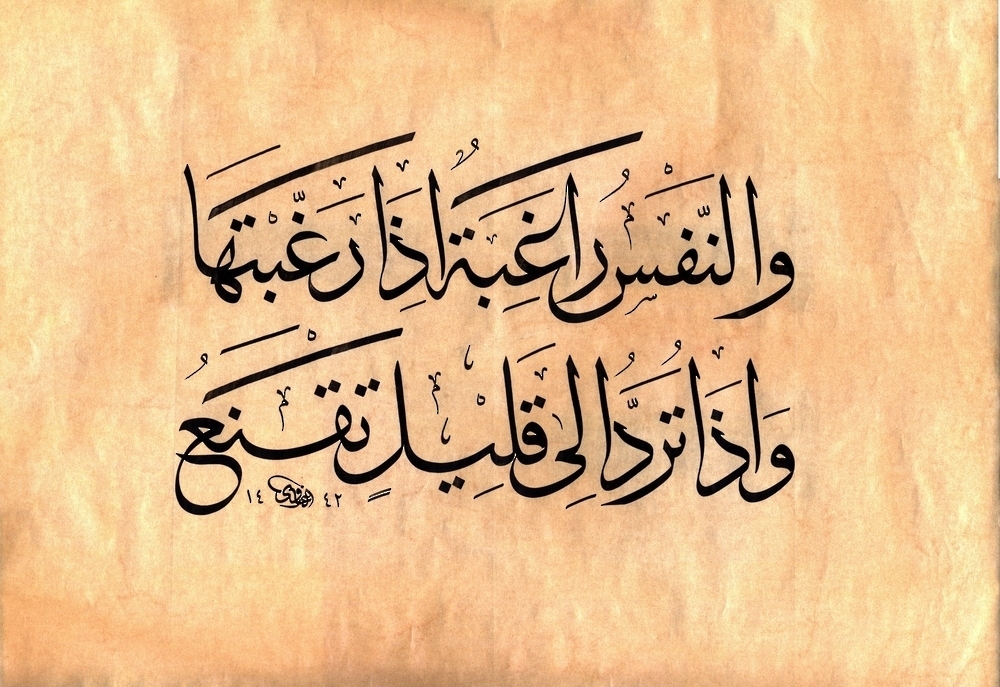 والنَّفْسُ رَاغِبَةٌ اذَا رَغَّبْتَهَا
وَاذَا تُرَدُّ الى قَلِيْلٍ تَقْنَعُ
١٤ ٤٢